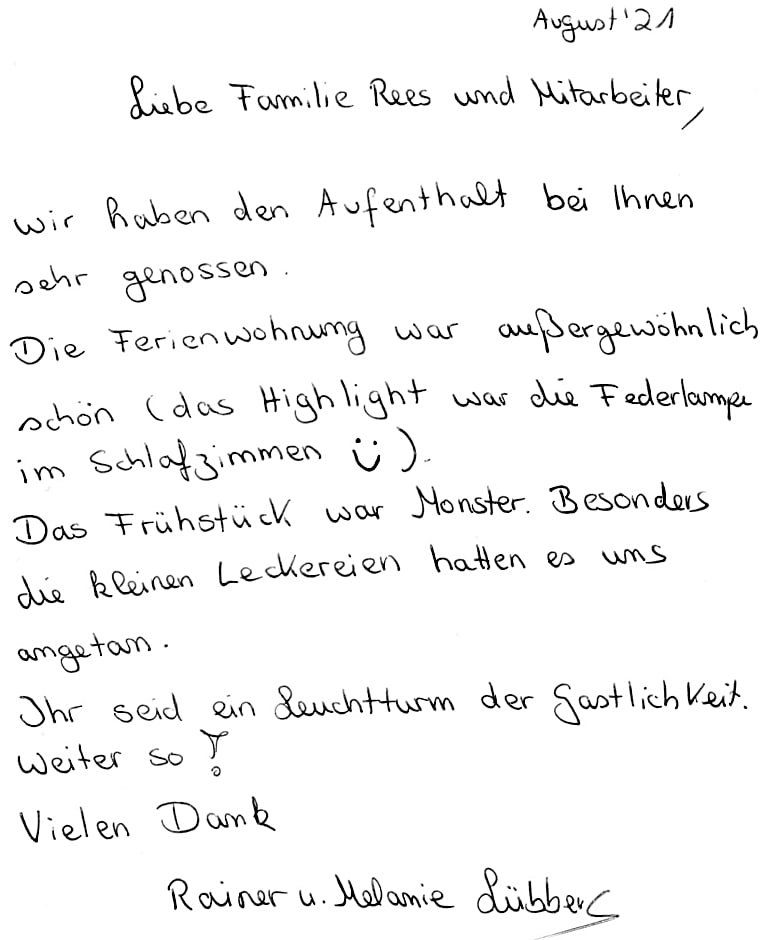 August '21
Liebe Familie Rees und Mitarbeiter,
wir haben den Aufenthalt bei Ihnen
sehr genossen.
Die Ferienwohnung war außergewöhnlich
schön (das Highlight war die Federlampe
im Schlafzimmen ü).
Das Frühstück war Monster. Besonders
die kleinen Leckereien hatten es uns
angetan.
Ihr seid ein Leuchtturm der Gastlichkeit.
Weiter so!
Vielen Dank
Rainer u. Melanie Lübbers